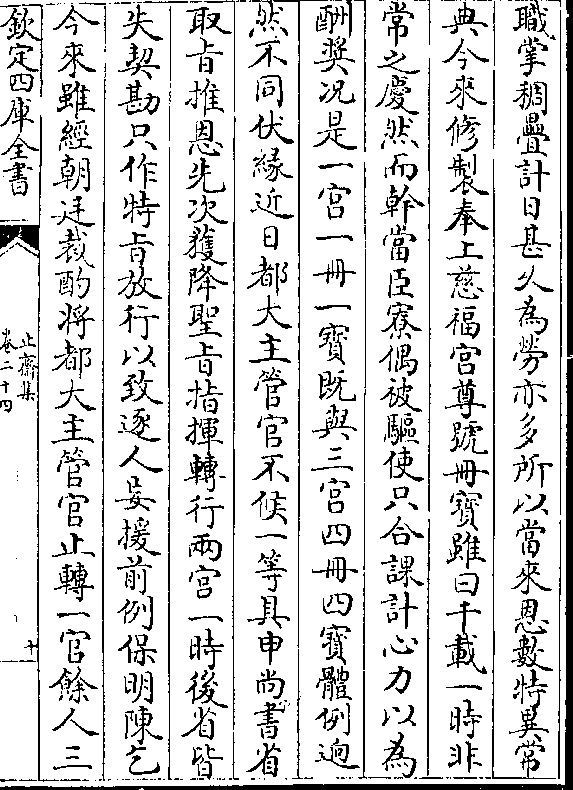 職掌稠疊計日甚久為勞亦多所以當來恩數特異常
典今來修製奉上慈福宮尊號冊寶雖曰千載一時非
常之慶然而幹當臣寮偶被驅使只合課計心力以為
酬奬况是一宮一冊一寶既與三宮四冊四寶體例逈
然不同伏緣近日都大主管官不候一等具申尚書省
取㫖推恩先次獲降聖㫖指揮轉行兩官一時後省皆
失契勘只作特㫖放行以致逐人妄援前例保明陳乞
今來雖經朝廷裁酌將都大主管官止轉一官餘人三
欽定四庫全書
止齋集
卷二十四
十